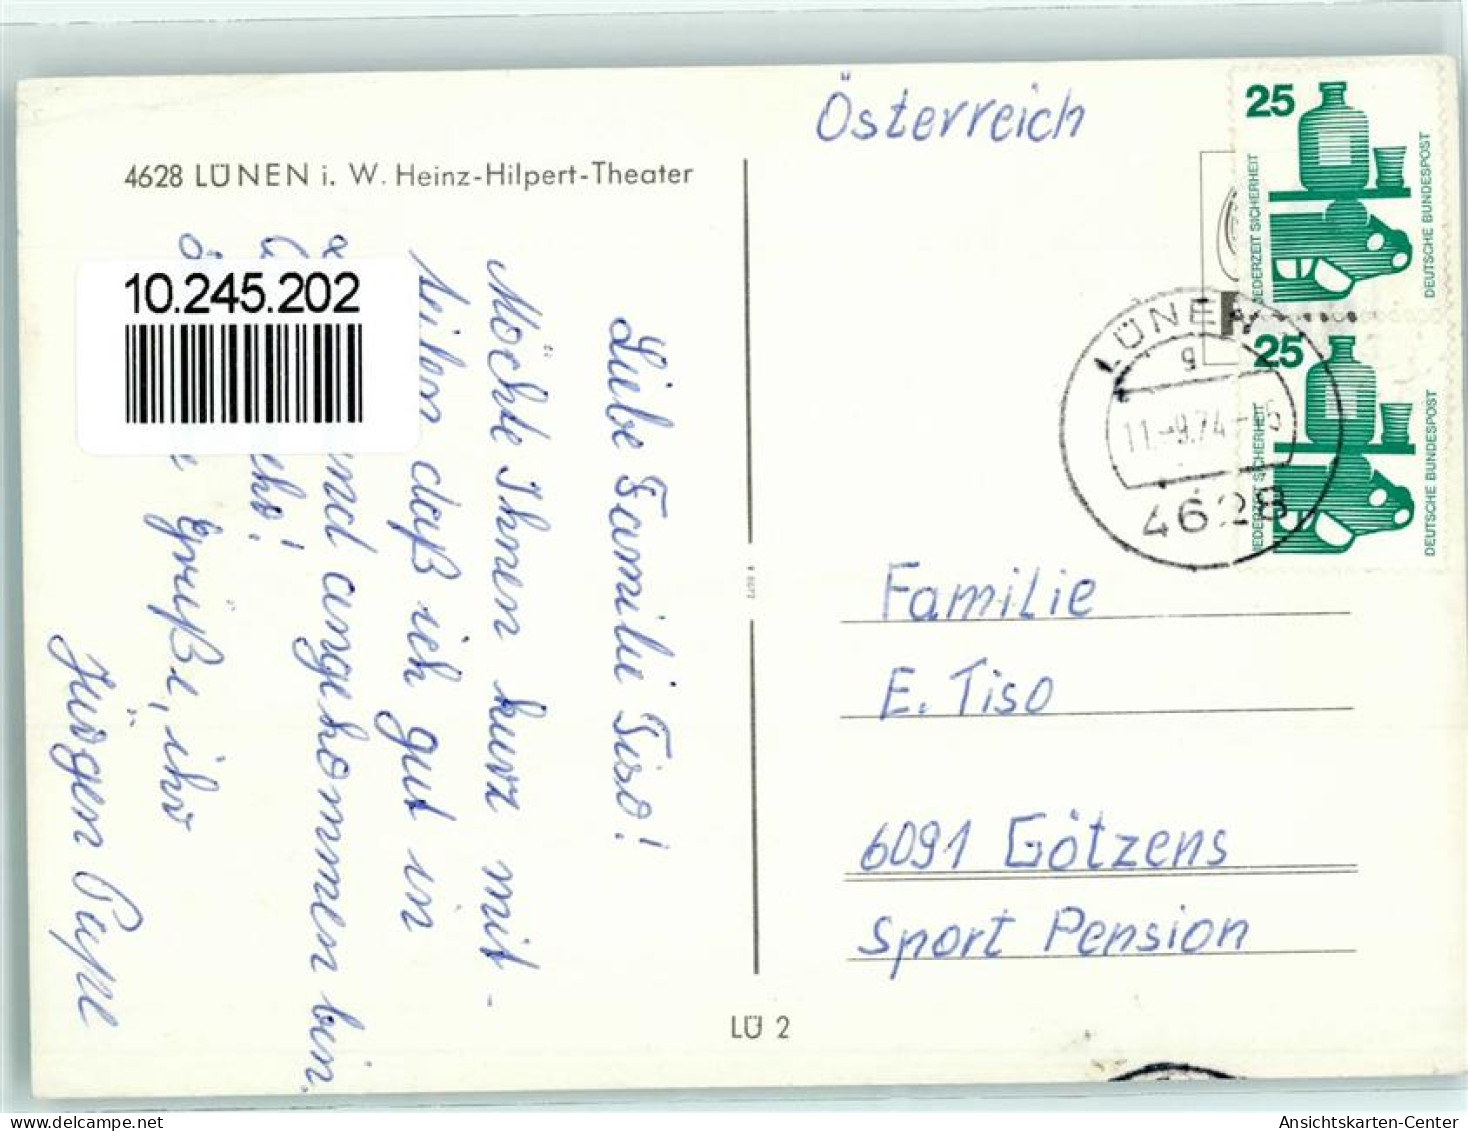 Österreich
4628 LÜNEN i. W. Heinz-Hilpert-Theater
10.245.202
Liebe Familie Tiso!
Möchte Ihnen kurz mit-
teilen daß ich gut in
angekommen bin.
Grüße, ihr
Jürgen
25
NIEDERZEIT SICHERHEIT
DEUTSCHE BUNDESPOST
25
NIEDERZEIT SICHERHEIT
DEUTSCHE BUNDESPOST
LÜNEN
g
11.-9.74
4628
Familie
E. Tiso
6091 Götzens
Sport Pension
LÜ 2
Ansichtskarten-Center